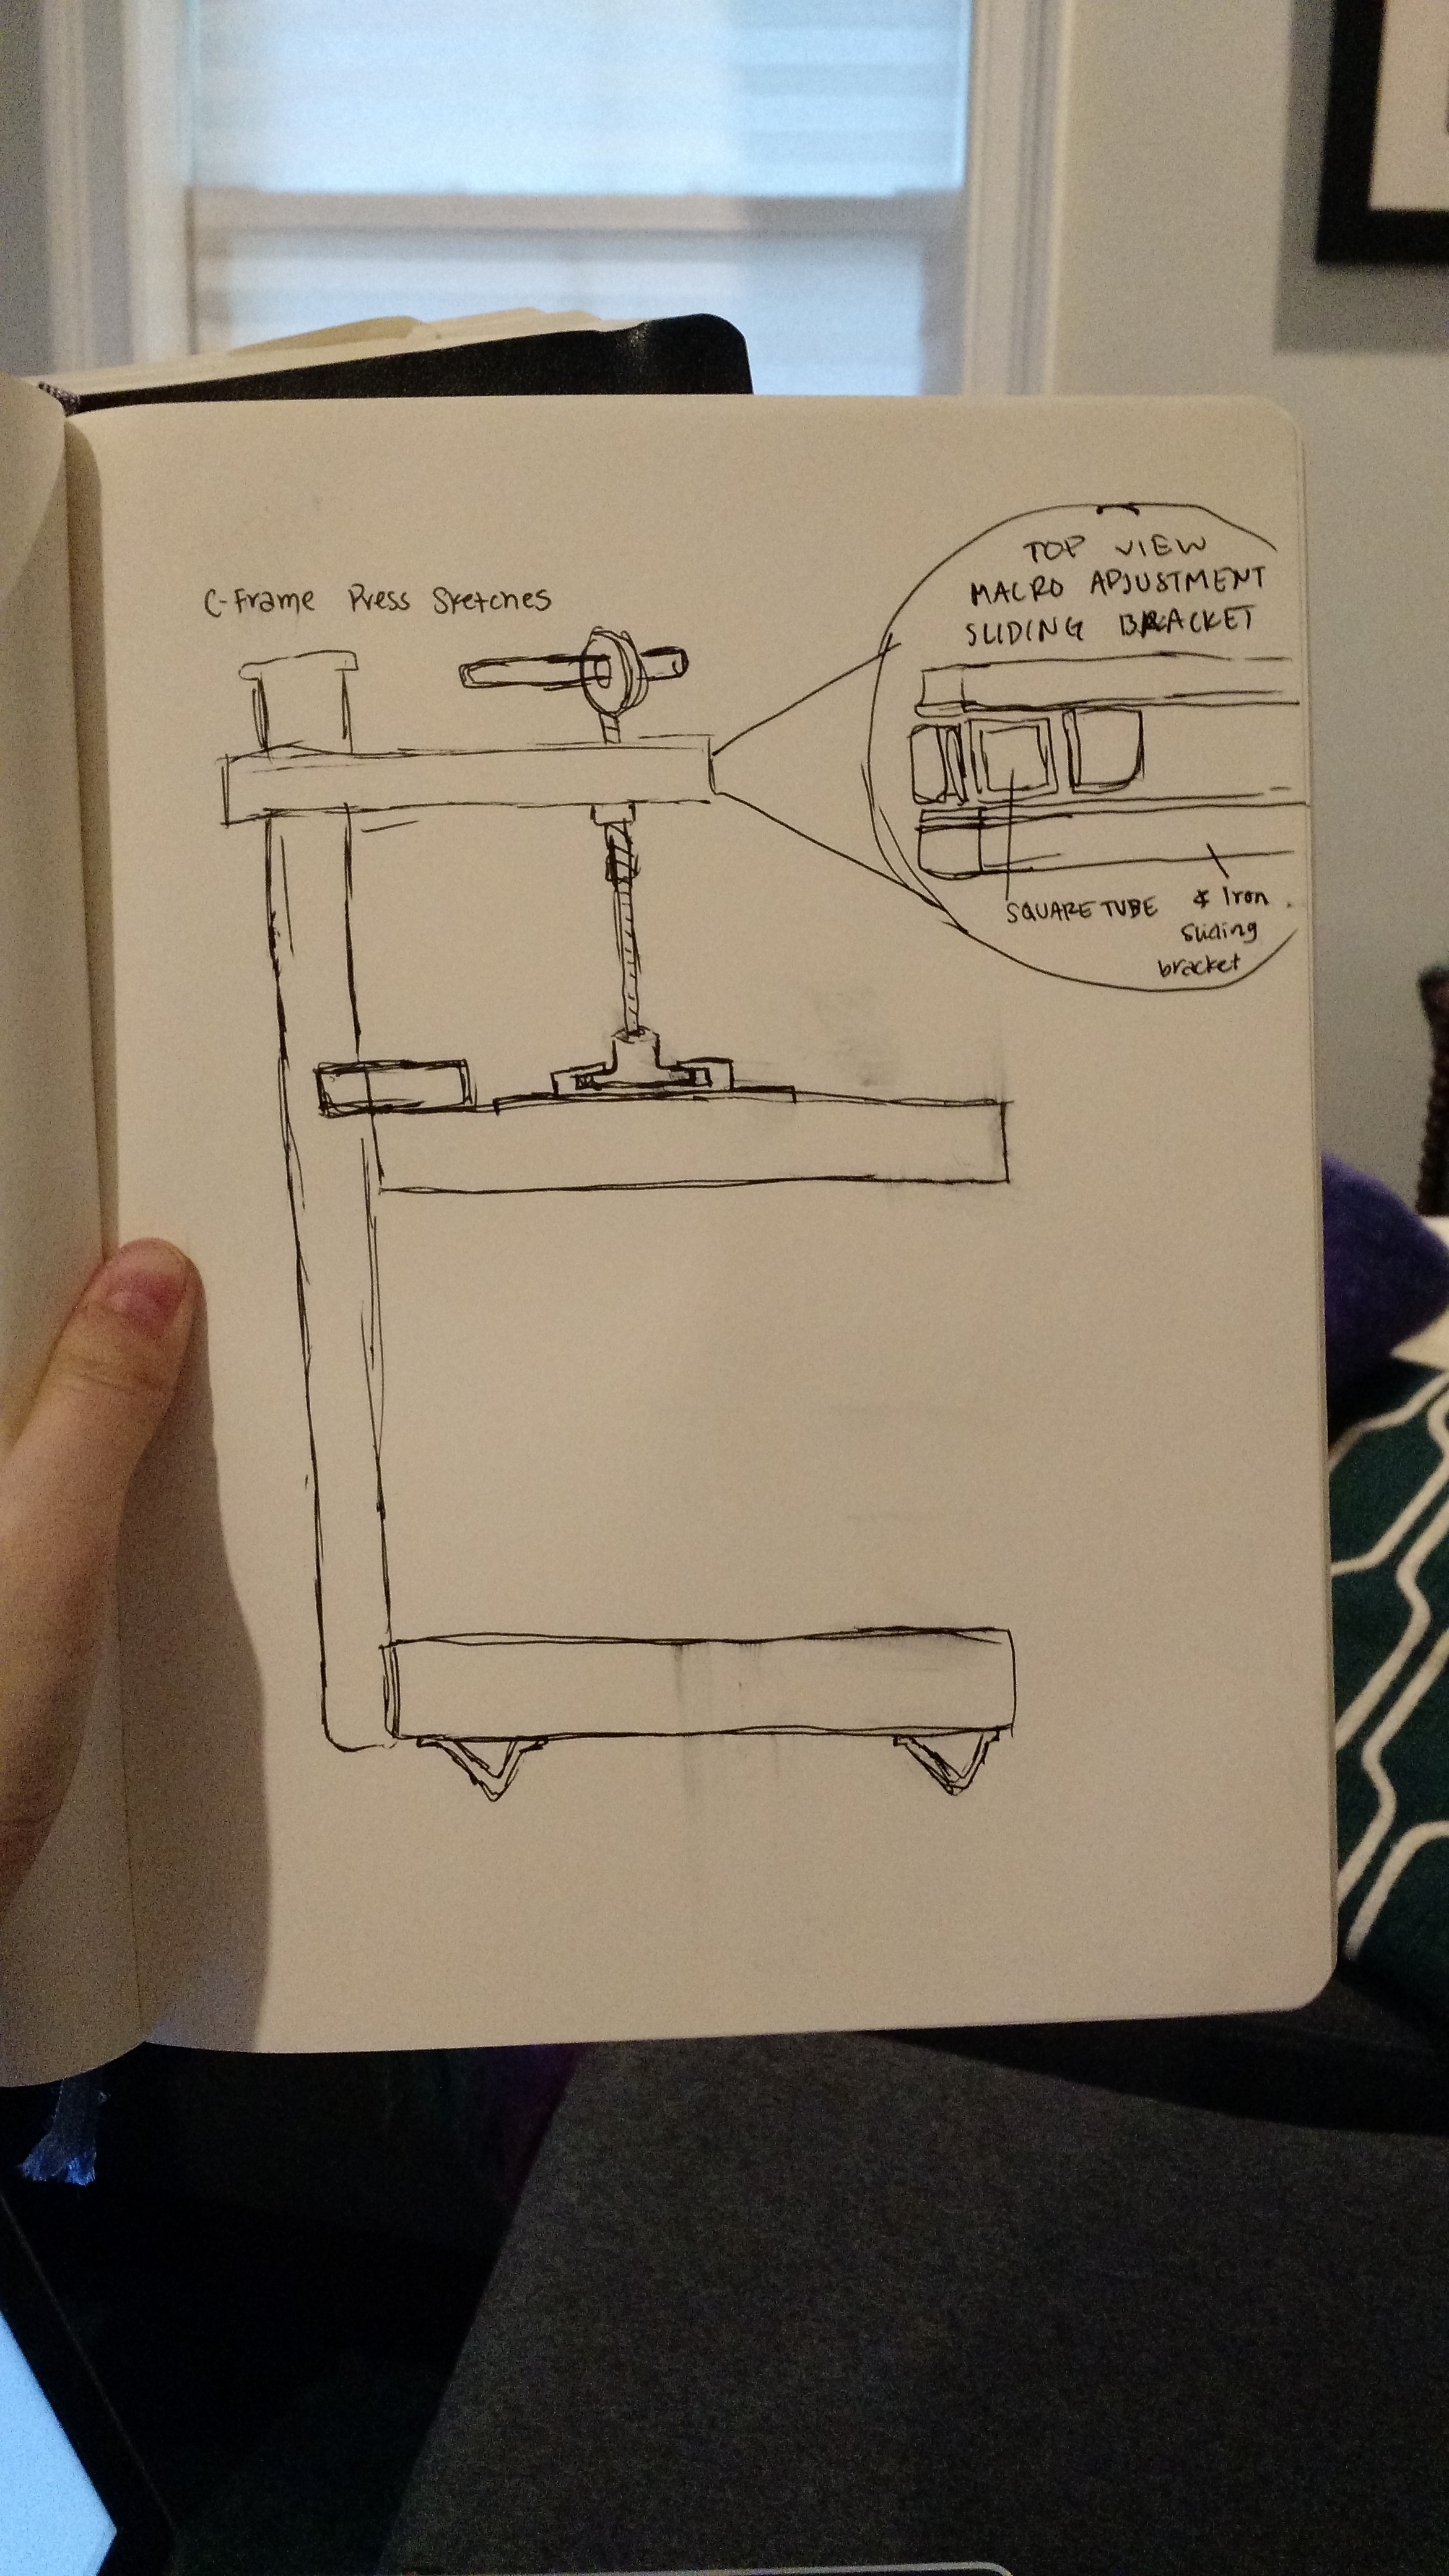 C-Frame Press Sketches
TOP VIEW
MACRO ADJUSTMENT
SLIDING BRACKET
SQUARE TUBE
∡ Iron
sliding
bracket